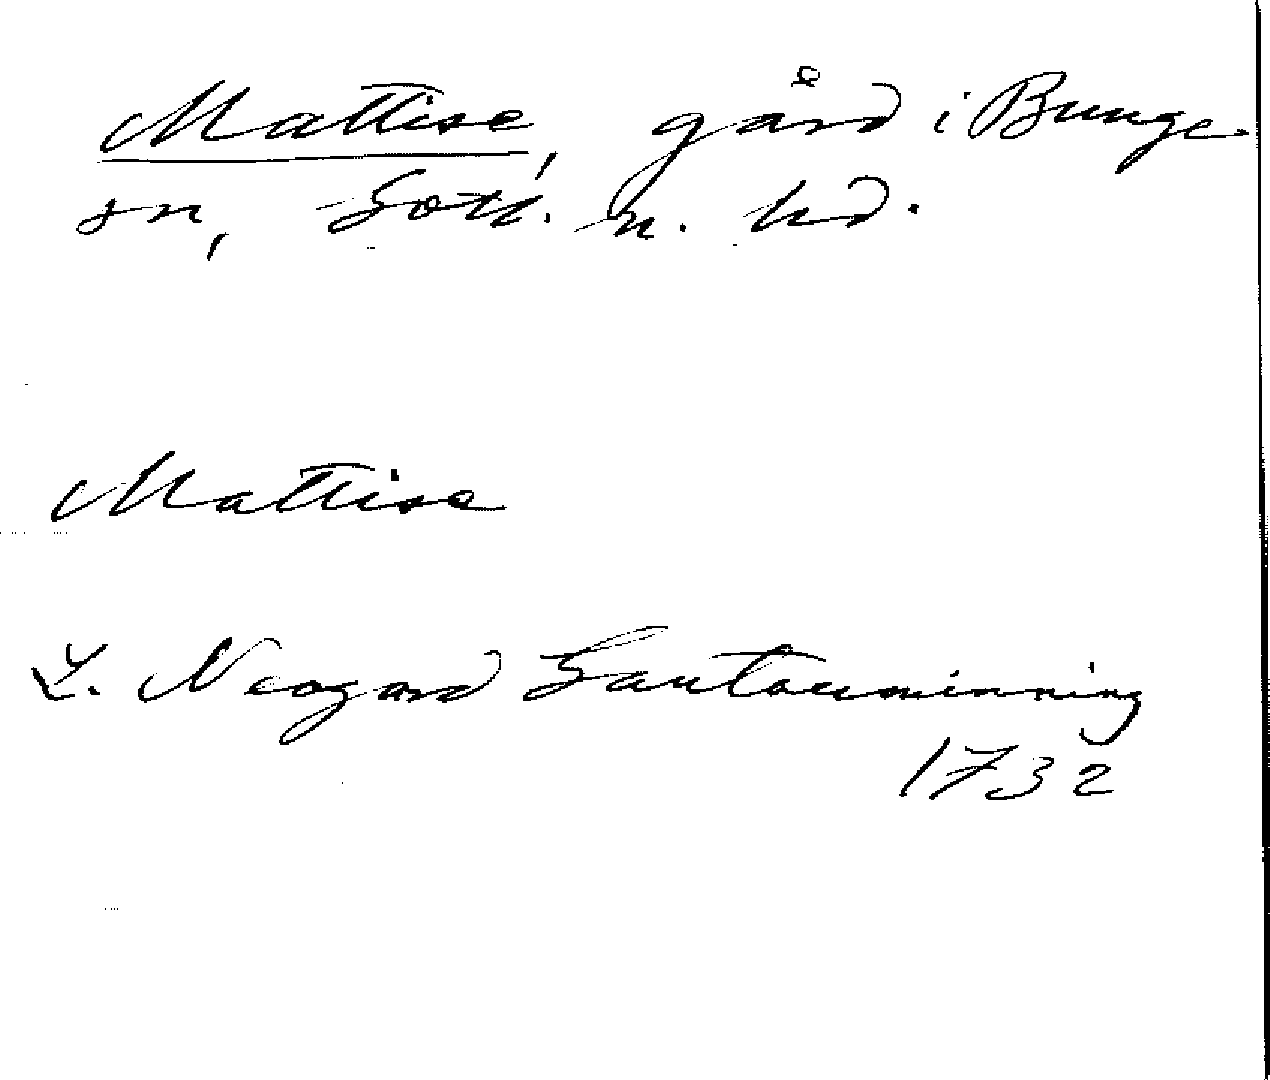 Mattise, gård i Bunge
sn, Gotl. n. hd.
Mattise
L. Neogard Gautauminning
1732